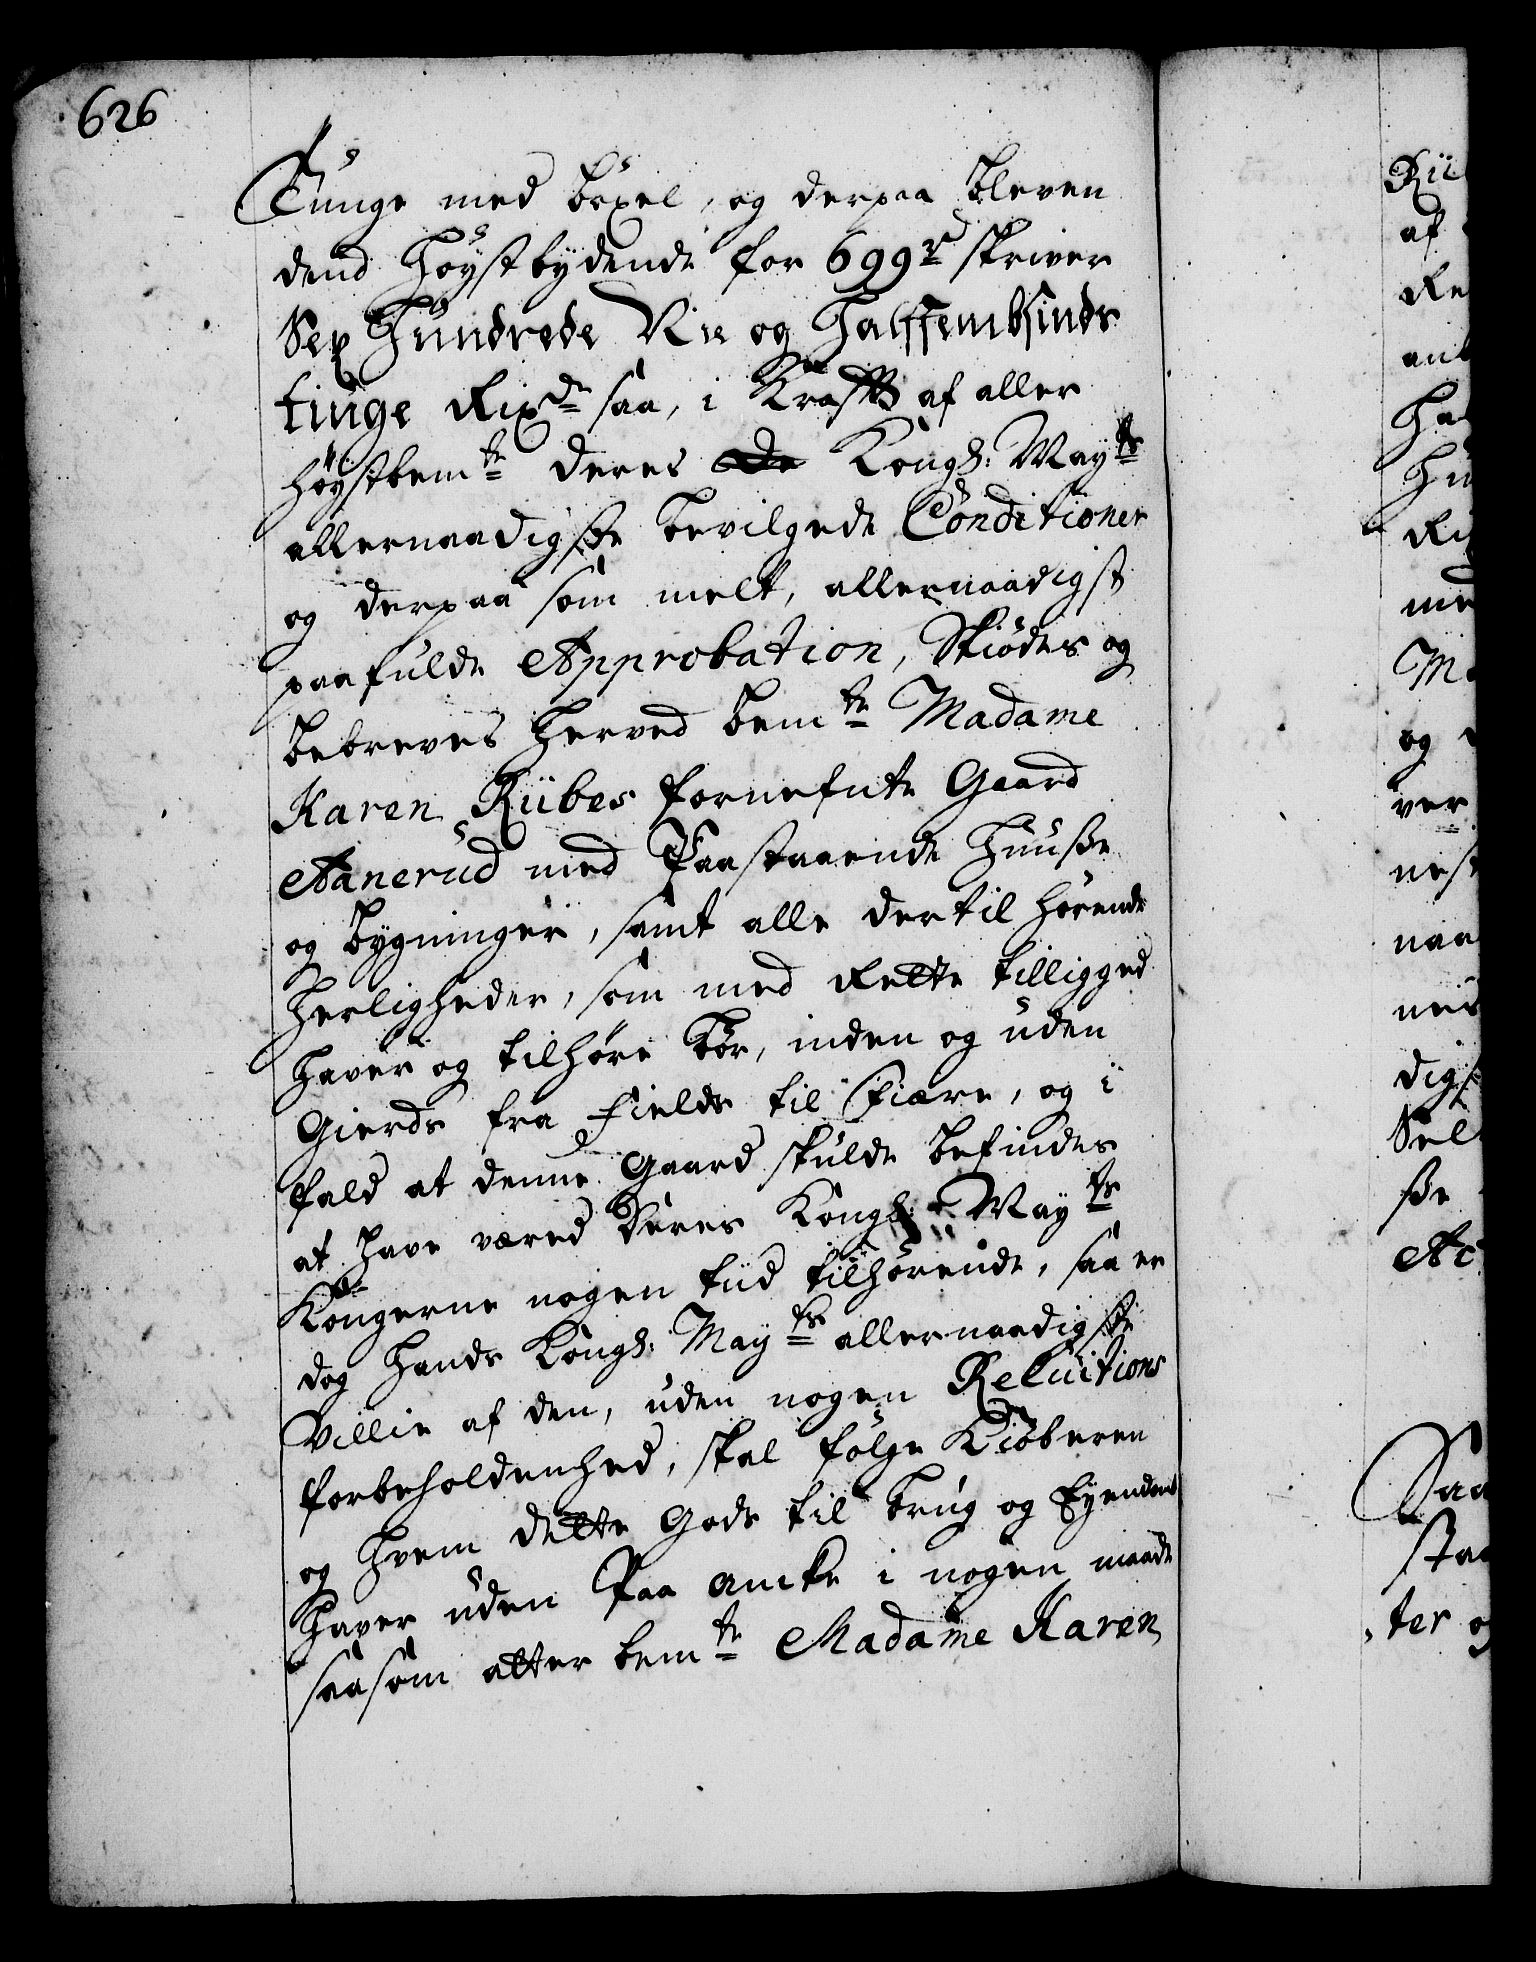 626
Tunge med böxel, og derpaa bleven
dend Höystbydende for 699 rd skriver
Sex Hundrede Nie og Halffembsinds
tiuge Rixdr saa, i Krafft af aller
höystbemte deres Kongl: Mayts
allernaadigste bevilgede Conditioner
og derpaa som melt, allernaadigst
paafulde Approbation, Skiödes og
bebreves herved bemte Madame
Karen Riibes fornefnte Gaard
Aanerud med Paastaaende Huuße
og bygninger, samt alle dertil hörende
Herligheder, som med Rette tilligged
haver og tilhöre bör, inden og uden
Gierds fra Fields til Fiære, og i
fald at denne Gaard skulde befindes
at have været Deres Kongl: Mayts
Kongerne nogen tiid tilhörende, saa er
dog Hands Kongl: Mayts allernaadigste
Villie af den, uden nogen Reluitions
forbeholdenhed, skal fölge Kiöberen
og hvem dette Gods til brug og Eyendomb
haver uden Paa ancke i nogen maade
saasom atter bemte Madame Karen
Rii
af
Re
ver
og
ter